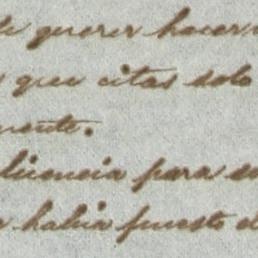 de querer hacer
que citas solo
mente.
licencia para
habia puesto